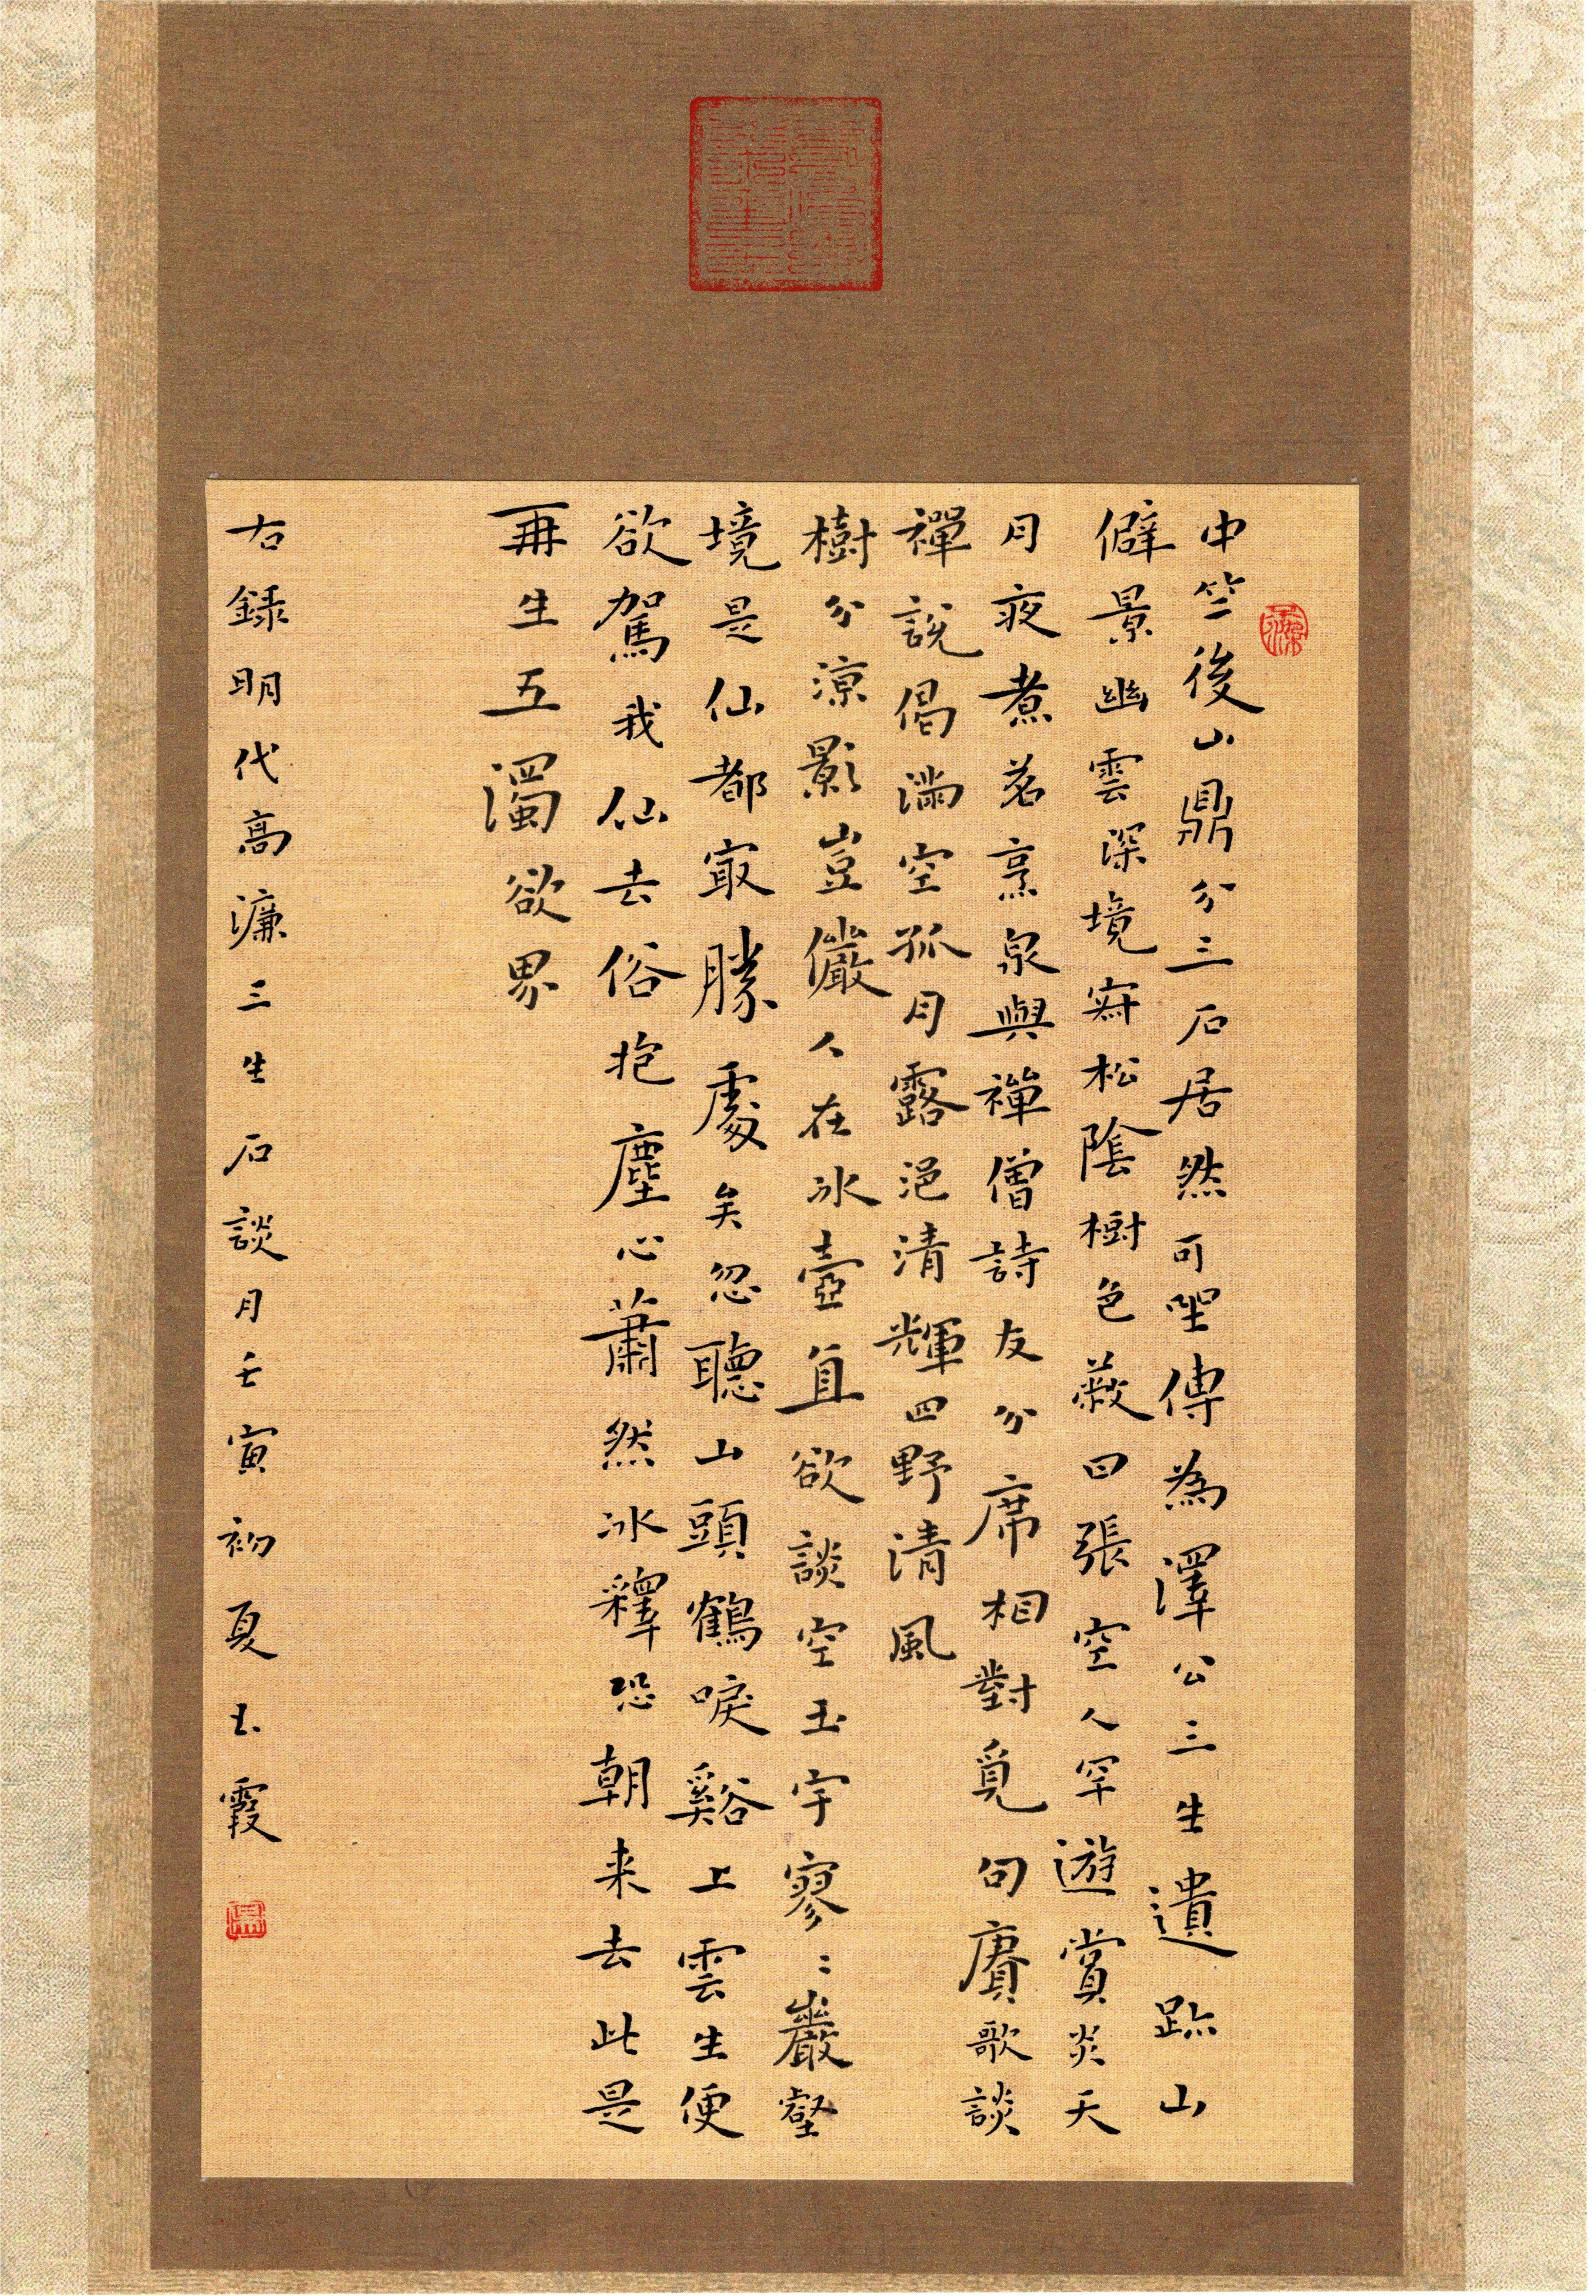 中竺後山鼎分三石居然可坐傳為澤公三生遺跡山
僻景幽雲深境寂松陰樹色蔽日張空人罕遊賞炎天
月夜煮茗烹泉與禪僧詩友分席相對覓句賡歌談
禪說偈滿空孤月露浥清輝四野清風
樹分涼影豈儼人在冰壺直欲談空玉宇寥〻巖壑
境是仙都最勝處矣忽聽山頭鶴唳谿上雲生便
欲駕我仙去俗抱塵心蕭然冰釋恐朝来去此是
再生五濁欲界
右錄明代高濂三生石談月壬寅初夏玉霞